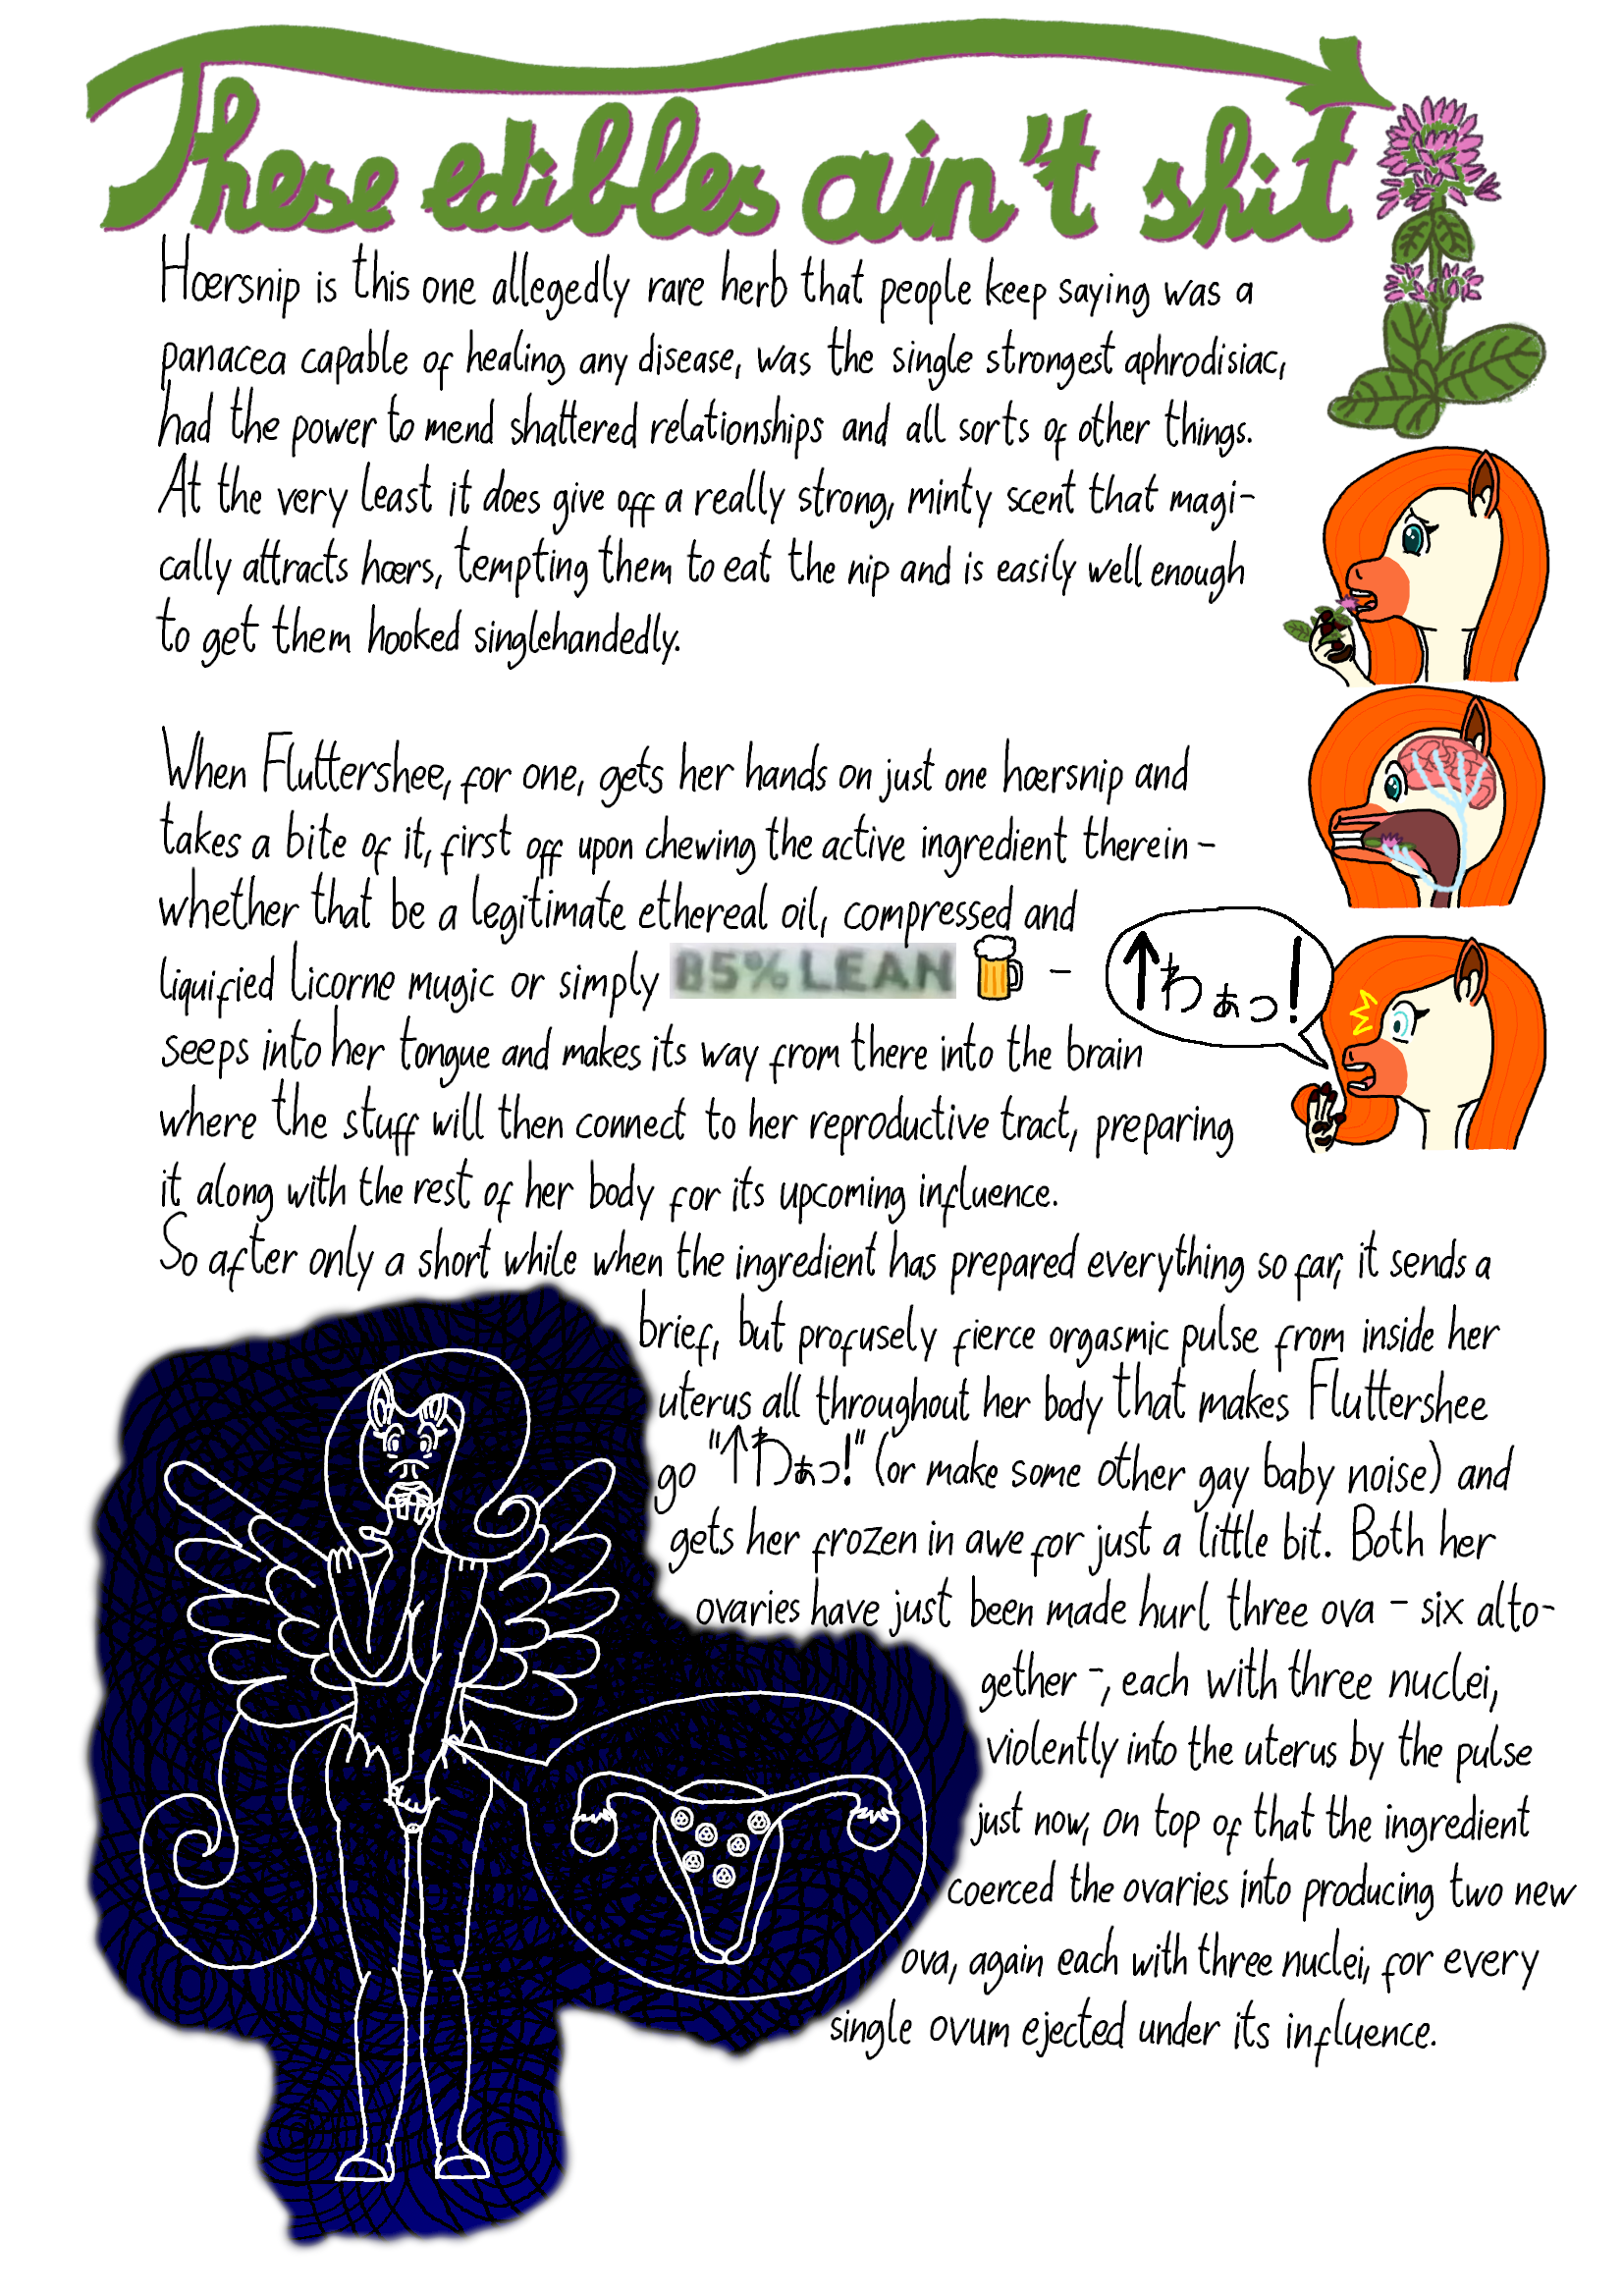 These edibles ain't shit
Hœrsnip is this one allegedly rare herb that people keep saying was a
panacea capable of healing any disease, was the single strongest aphrodisiac,
had the power to mend shattered relationships and all sorts of other things.
At the very least it does give off a really strong, minty scent that magi-
cally attracts hœrs, tempting them to eat the nip and is easily well enough
to get them hooked singlehandedly.
When Fluttershee, for one, gets her hands on just one hœrsnip and
takes a bite of it, first off upon chewing the active ingredient therein –
whether that be a legitimate ethereal oil, compressed and
liquified licorne mugic or simply 85% LEAN 🍺 –
↑わぁっ!
seeps into her tongue and makes its way from there into the brain
where the stuff will then connect to her reproductive tract, preparing
it along with the rest of her body for its upcoming influence.
So after only a short while when the ingredient has prepared everything so far, it sends a
brief, but profusely fierce orgasmic pulse from inside her
uterus all throughout her body that makes Fluttershee
go "↑わぁっ!" (or make some other gay baby noise) and
gets her frozen in awe for just a little bit. Both her
ovaries have just been made hurl three ova – six alto-
gether –, each with three nuclei,
violently into the uterus by the pulse
just now, on top of that the ingredient
coerced the ovaries into producing two new
ova, again each with three nuclei, for every
single ovum ejected under its influence.